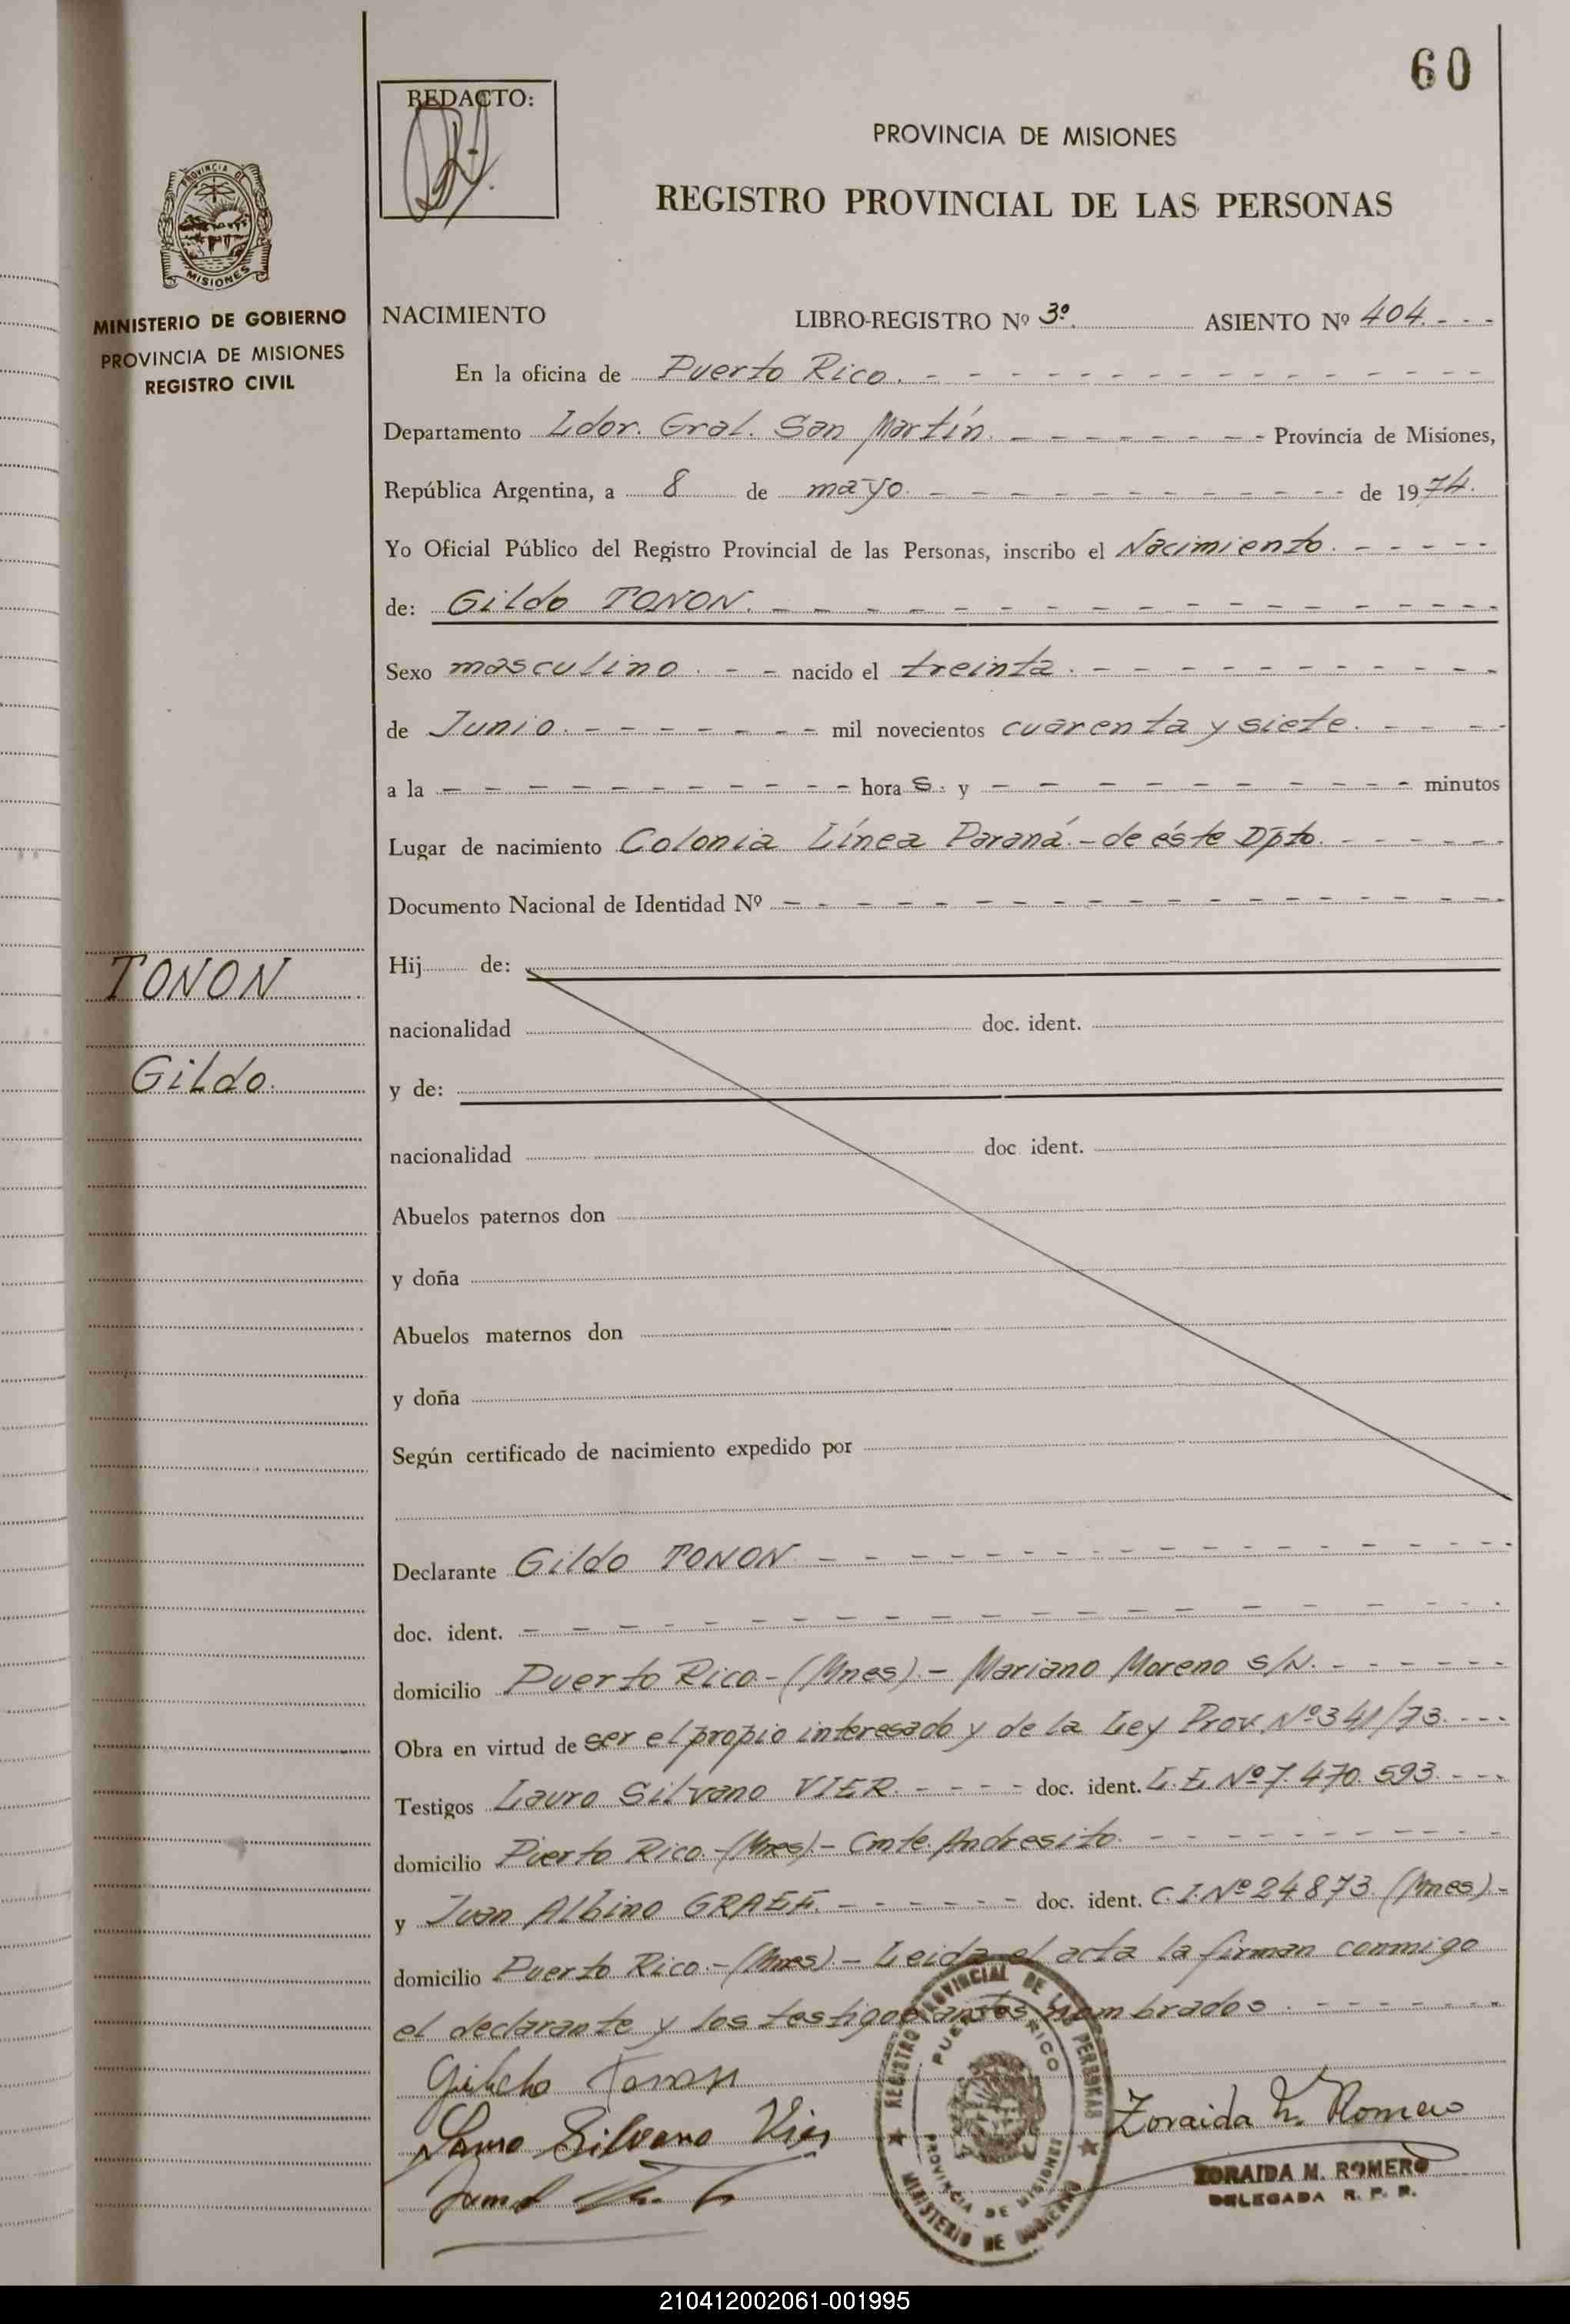 60
REDACTO:
PROVINCIA DE MISIONES
REGISTRO PROVINCIAL DE LAS PERSONAS
PROVINCIA DE
MISIONES
MINISTERIO DE GOBIERNO
PROVINCIA DE MISIONES
REGISTRO CIVIL
NACIMIENTO LIBRO-REGISTRO Nº 3º. ASIENTO Nº 404. - - -
En la oficina de Puerto Rico. - - - - - - - - - - - - - - -
Departamento Ldor. Gral. San Martín. - - - - - - - - Provincia de Misiones,
República Argentina, a 8 de mayo. - - - - - - - - - - - de 1974.
Yo Oficial Público del Registro Provincial de las Personas, inscribo el Nacimiento. - - - - -
de: Gildo TONON. - - - - - - - - - - - - - - - - -
Sexo masculino. - - nacido el treinta. - - - - - - - - - - -
de Junio. - - - - - - - mil novecientos cuarenta y siete. - - - -
a la - - - - - - - - - - - hora s. y - - - - - - - - - minutos
Lugar de nacimiento Colonia Línea Paraná.- de éste Dpto. - - - - -
Documento Nacional de Identidad Nº - - - - - - - - - - - - - - - - -
TONON
Gildo.
Hij de:
nacionalidad doc. ident.
y de:
nacionalidad doc. ident.
Abuelos paternos don
y doña
Abuelos maternos don
y doña
Según certificado de nacimiento expedido por
Declarante Gildo TONON - - - - - - - - - - - - - - - - -
doc. ident. - - - - - - - - - - - - - - - - -
domicilio Puerto Rico.- (Mnes).- Mariano Moreno s/N. - - - - - -
Obra en virtud de ser el propio interesado y de la Ley Prov. Nº 341/73. - - -
Testigos Lauro Silvano VIER. - - - - doc. ident. L.E. Nº 7.470.593. - - -
domicilio Puerto Rico.-(Mnes).- Cmte. Andresito. - - - - - - - - - -
y Juan Albino GRAEF. - - - - - - doc. ident. C.I. Nº 24873. (Mnes).-
domicilio Puerto Rico.- (Mnes).- Leida el acta la firman conmigo
el declarante y los testigos antes nombrados. - - - - - - -
Gildo Tonon
Lauro Silvano Vier
Zoraida M. Romero
ZORAIDA M. ROMERO
DELEGADA R. P. P.
REGISTRO PROVINCIAL DE LAS PERSONAS
PUERTO RICO
PROVINCIA DE MISIONES
MINISTERIO DE GOBIERNO
210412002061-001995